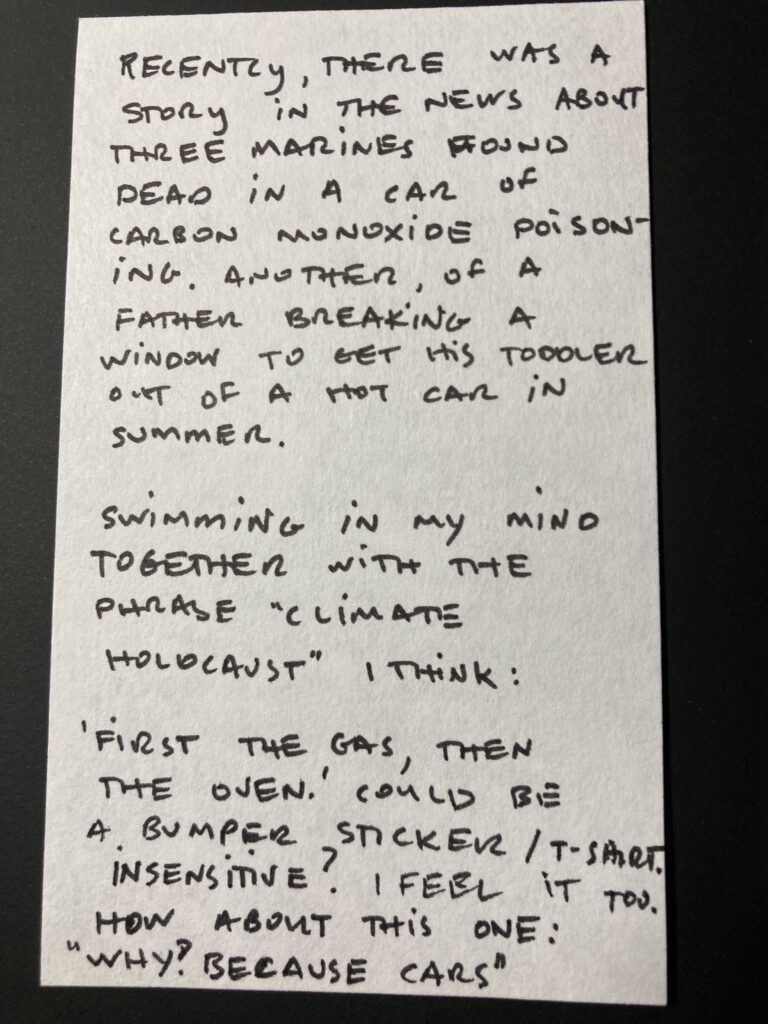 RECENTLY, THERE WAS A
STORY IN THE NEWS ABOUT
THREE MARINES FOUND
DEAD IN A CAR OF
CARBON MONOXIDE POISON-
ING. ANOTHER, OF A
FATHER BREAKING A
WINDOW TO GET HIS TODDLER
OUT OF A HOT CAR IN
SUMMER.
SWIMMING IN MY MIND
TOGETHER WITH THE
PHRASE "CLIMATE
HOLOCAUST" I THINK:
'FIRST THE GAS, THEN
THE OVEN.' COULD BE
A BUMPER STICKER / T-SHIRT.
INSENSITIVE? I FEEL IT TOO.
HOW ABOUT THIS ONE:
"WHY? BECAUSE CARS"